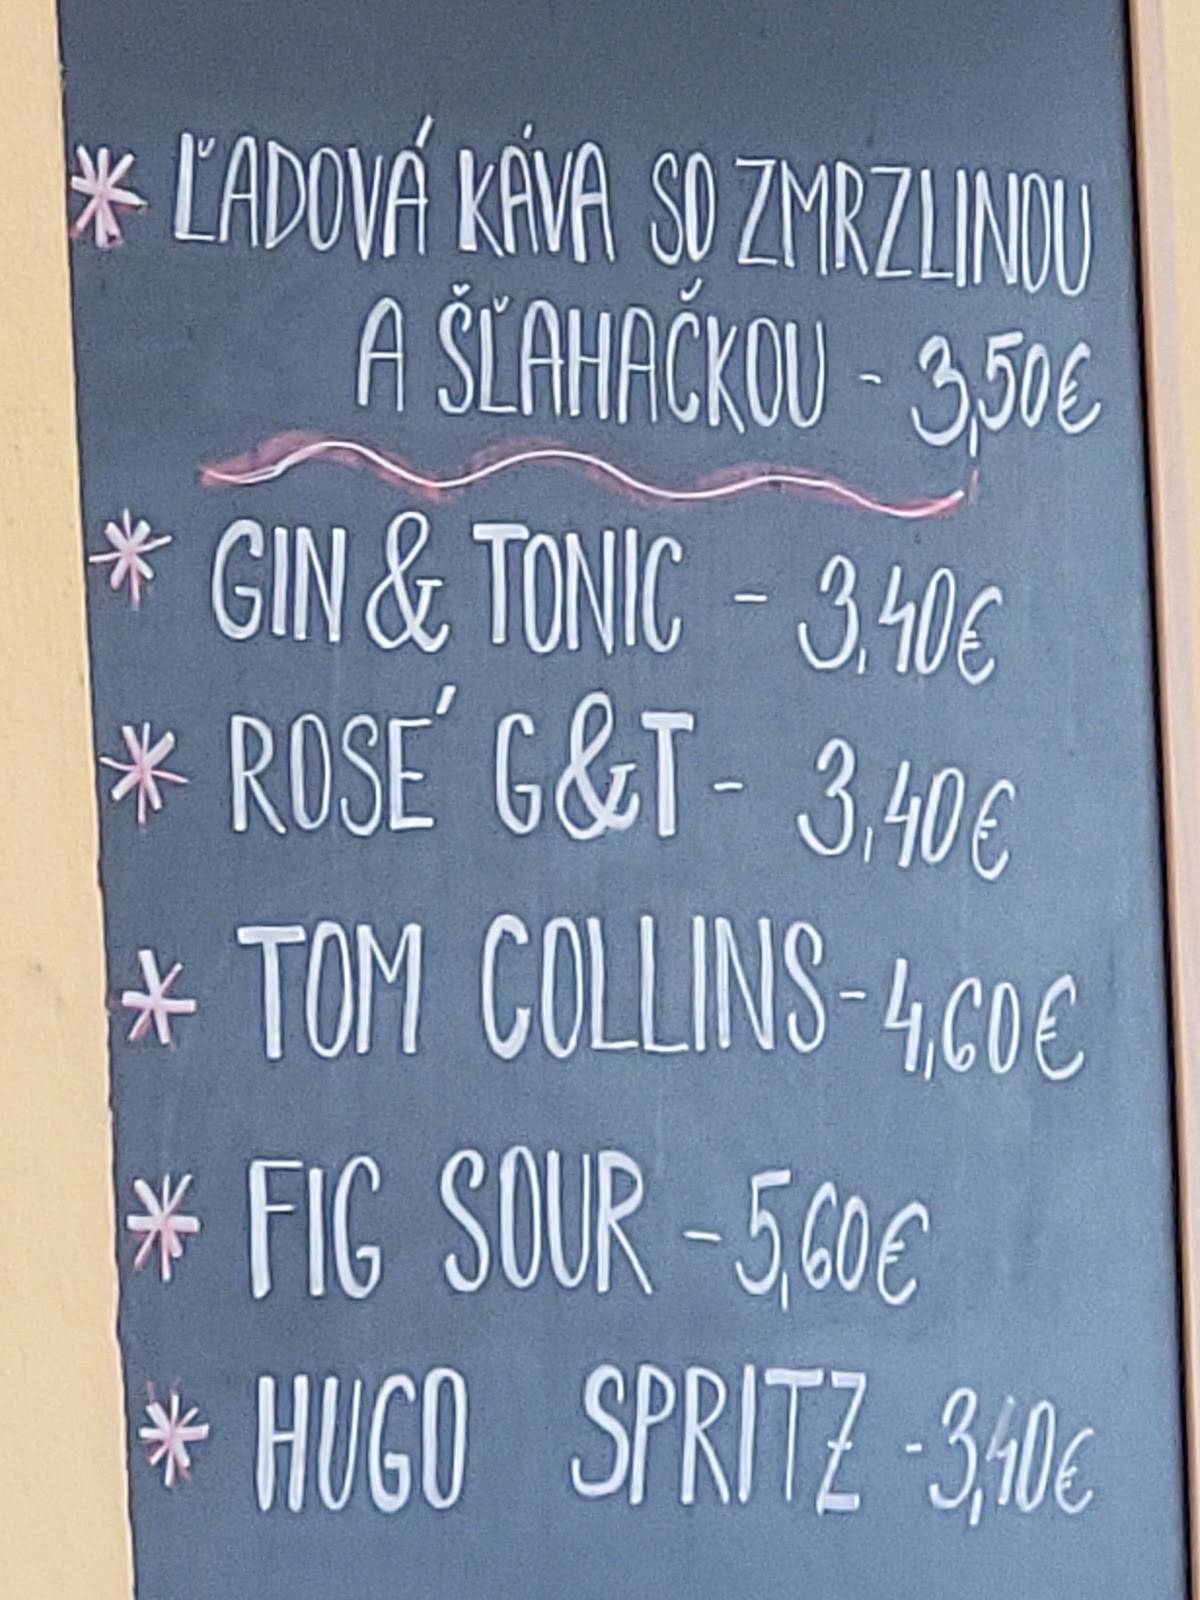 * ĽADOVÁ KÁVA SO ZMRZLINOU
A ŠĽAHAČKOU - 3,50€
* GIN & TONIC - 3,40€
* ROSÉ G&T - 3,40€
* TOM COLLINS - 4,60€
* FIG SOUR - 5,60€
* HUGO SPRITZ - 3,40€